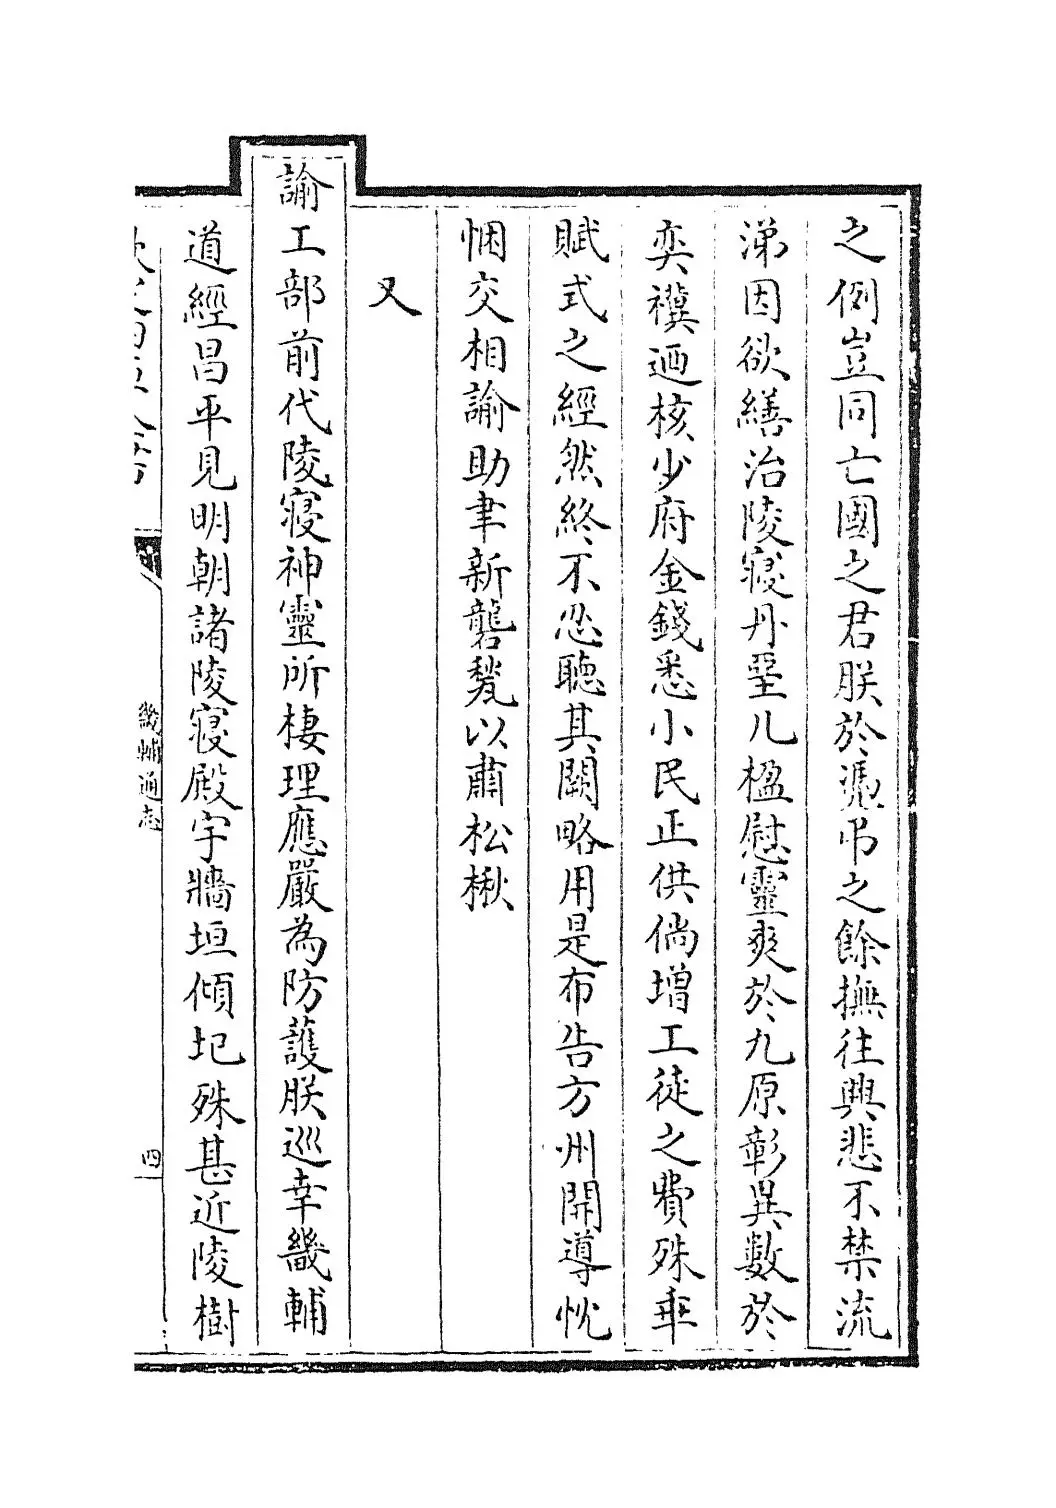 之例豈同亡國之君朕於憑弔之餘撫往興悲不禁流
涕因欲繕治陵寢丹堊几楹慰靈爽於九原彰異數於
奕禩迺核少府金錢悉小民正供倘增工徒之費殊乖
賦式之經然終不忍聽其闕略用是布告方州開導忱
悃交相諭助聿新礱甃以肅松楸
又
諭工部前代陵寢神靈所棲理應嚴為防護朕巡幸畿輔
道經昌平見明朝諸陵寢殿宇牆垣傾圮殊甚近陵樹
畿輔通志
四